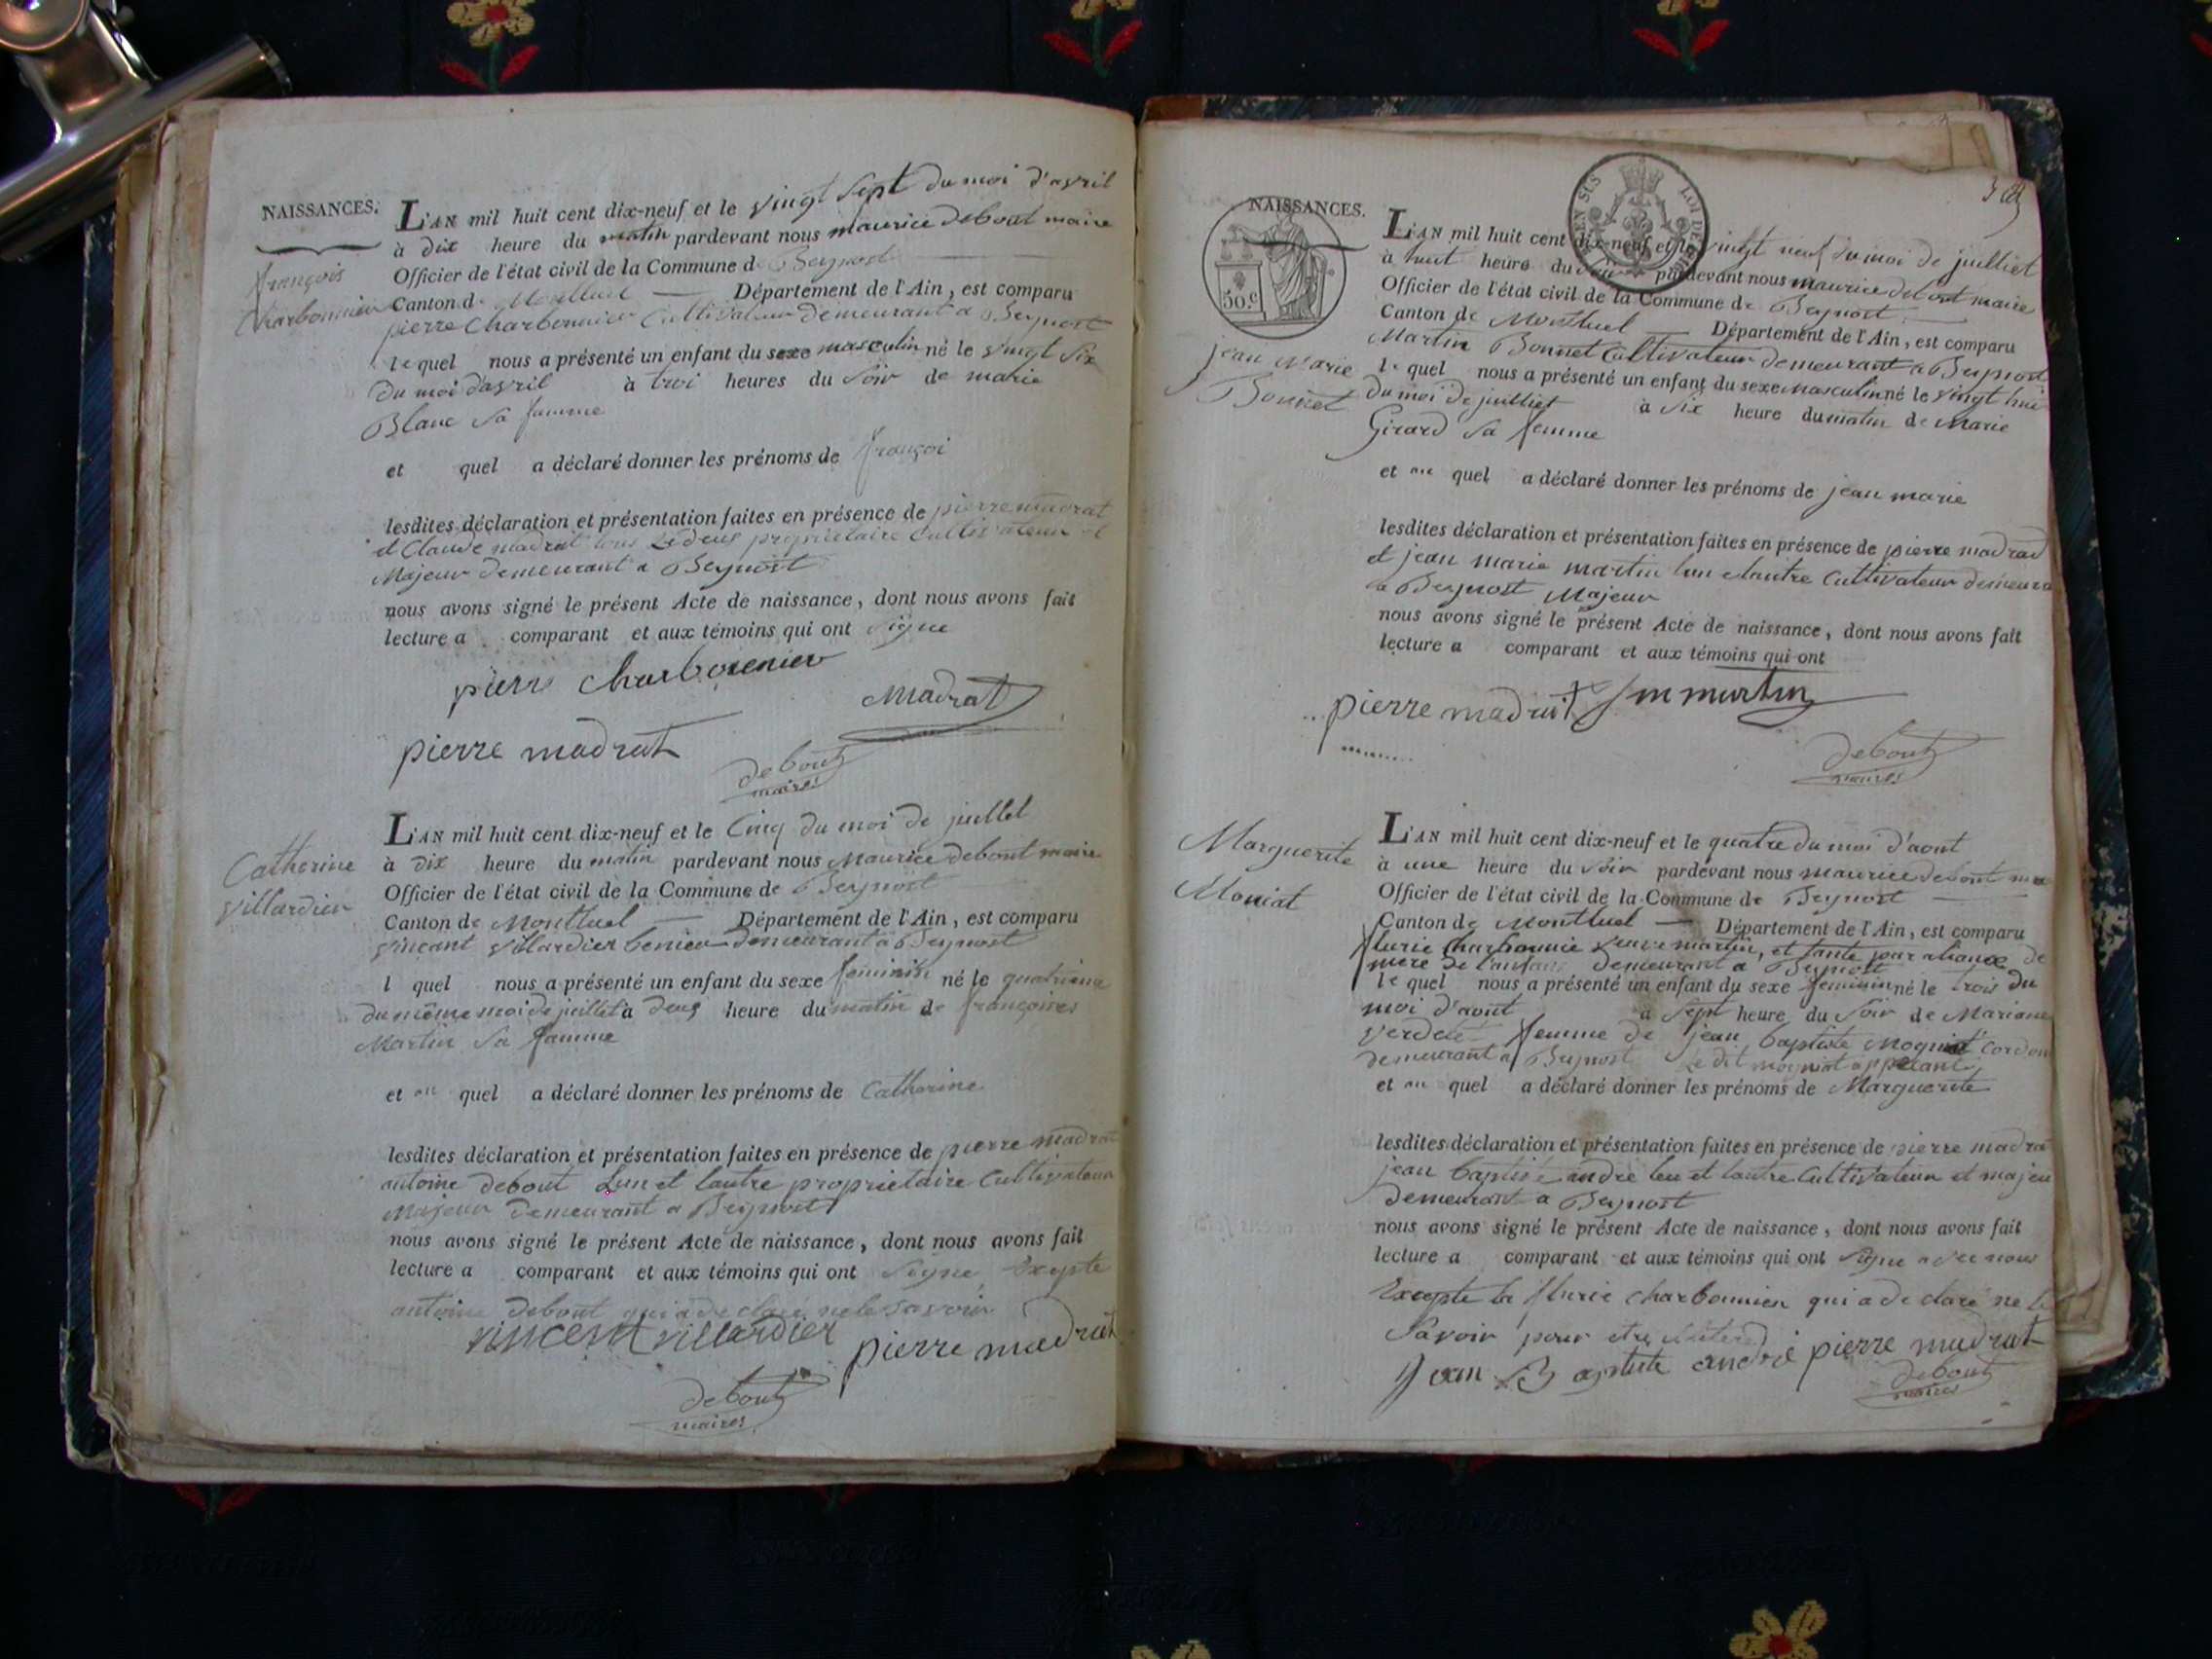 NAISSANCES.
françois
Charbonnier
L'AN mil huit cent dix-neuf et le vingt sept du moi d'avril
à dix heure du matin pardevant nous maurice debout maire
Officier de l'état civil de la Commune d Beynost
Canton de Montluel Département de l'Ain, est comparu
pierre Charbonnier Cultivateur demeurant a Beynost
le quel nous a présenté un enfant du sexe masculin né le vingt Six
du moi d'avril à troi heures du Soir de marie
Blanc Sa famme
et quel a déclaré donner les prénoms de françoi
lesdites déclaration et présentation faites en présence de pierre madrat
et Claude madrat tous Les deus proprietaire Cultivateur et
Majeur demeurant a Beynost
nous avons signé le présent Acte de naissance, dont nous avons fait
lecture a comparant et aux témoins qui ont Signe
pierre charbonnier
Madrat
pierre madrat
debout
maire
Catherine
Villardier
L'AN mil huit cent dix-neuf et le Cinq du moi de juillet
à dix heure du matin pardevant nous Maurice debout maire
Officier de l'état civil de la Commune de Beynost
Canton de Montluel Département de l'Ain, est comparu
vinçant Villardier demeurant a Beynost
l quel nous a présenté un enfant du sexe feminin né le quatrieme
du même moi de juillet à deus heure du matin de françoises
Martin Sa famme
et au quel a déclaré donner les prénoms de Catherine
lesdites déclaration et présentation faites en présence de pierre madrat
antoine debout Lun et lautre proprietaire Cultivateur
Majeur demeurant a Beynost
nous avons signé le présent Acte de naissance, dont nous avons fait
lecture a comparant et aux témoins qui ont Signe Exepte
antoine debout qui a declaré ne le savoir
vincent villardier pierre madrat
debout
maires
NAISSANCES.
50.c
LOI DE
jean Marie
Bonnet
L'AN mil huit cent dix-neuf et le vingt neuf du moi de juilliet
à huit heure du Soir pardevant nous maurice debout maire
Officier de l'état civil de la Commune de Beynost
Canton de Montluel Département de l'Ain, est comparu
Martin Bonnet Cultivateur demeurant a Beynost
le quel nous a présenté un enfant du sexe Masculin né le vingt hui
du moi de juilliet à Six heure du matin de Marie
Girard Sa femme
et au quel a déclaré donner les prénoms de jean marie
lesdites déclaration et présentation faites en présence de pierre madrad
et jean marie martin lun et lautre Cultivateur demeura
a Beynost Majeur
nous avons signé le présent Acte de naissance, dont nous avons fait
lecture a comparant et aux témoins qui ont
pierre madrat martin
debout
maires
Marguerite
Moniat
L'AN mil huit cent dix-neuf et le quatre du moi d'aout
à une heure du Soir pardevant nous maurice debout ma
Officier de l'état civil de la Commune de Beynost
Canton de Montluel Département de l'Ain, est comparu
flurie Charbonnie veuve martin, et tante par aliance de
mere de l'anfant demeurant a Beynost
le quel nous a présenté un enfant du sexe feminin né le trois du
moi d'aout à Sept heure du Soir de Mariane
femme de jean baptiste Mogniat Cordon
demeurant a Beynost
et au quel a déclaré donner les prénoms de Marguerite
lesdites déclaration et présentation faites en présence de pierre madra
jean baptiste andré lun et lautre Cultivateur et majeu
demeurant a Beynost
nous avons signé le présent Acte de naissance, dont nous avons fait
lecture a comparant et aux témoins qui ont Signe avec nous
Excepte la flurie charbonnier qui a declaré ne le
Savoir pour etre
jean Baptiste andré pierre madrat
debout
maires